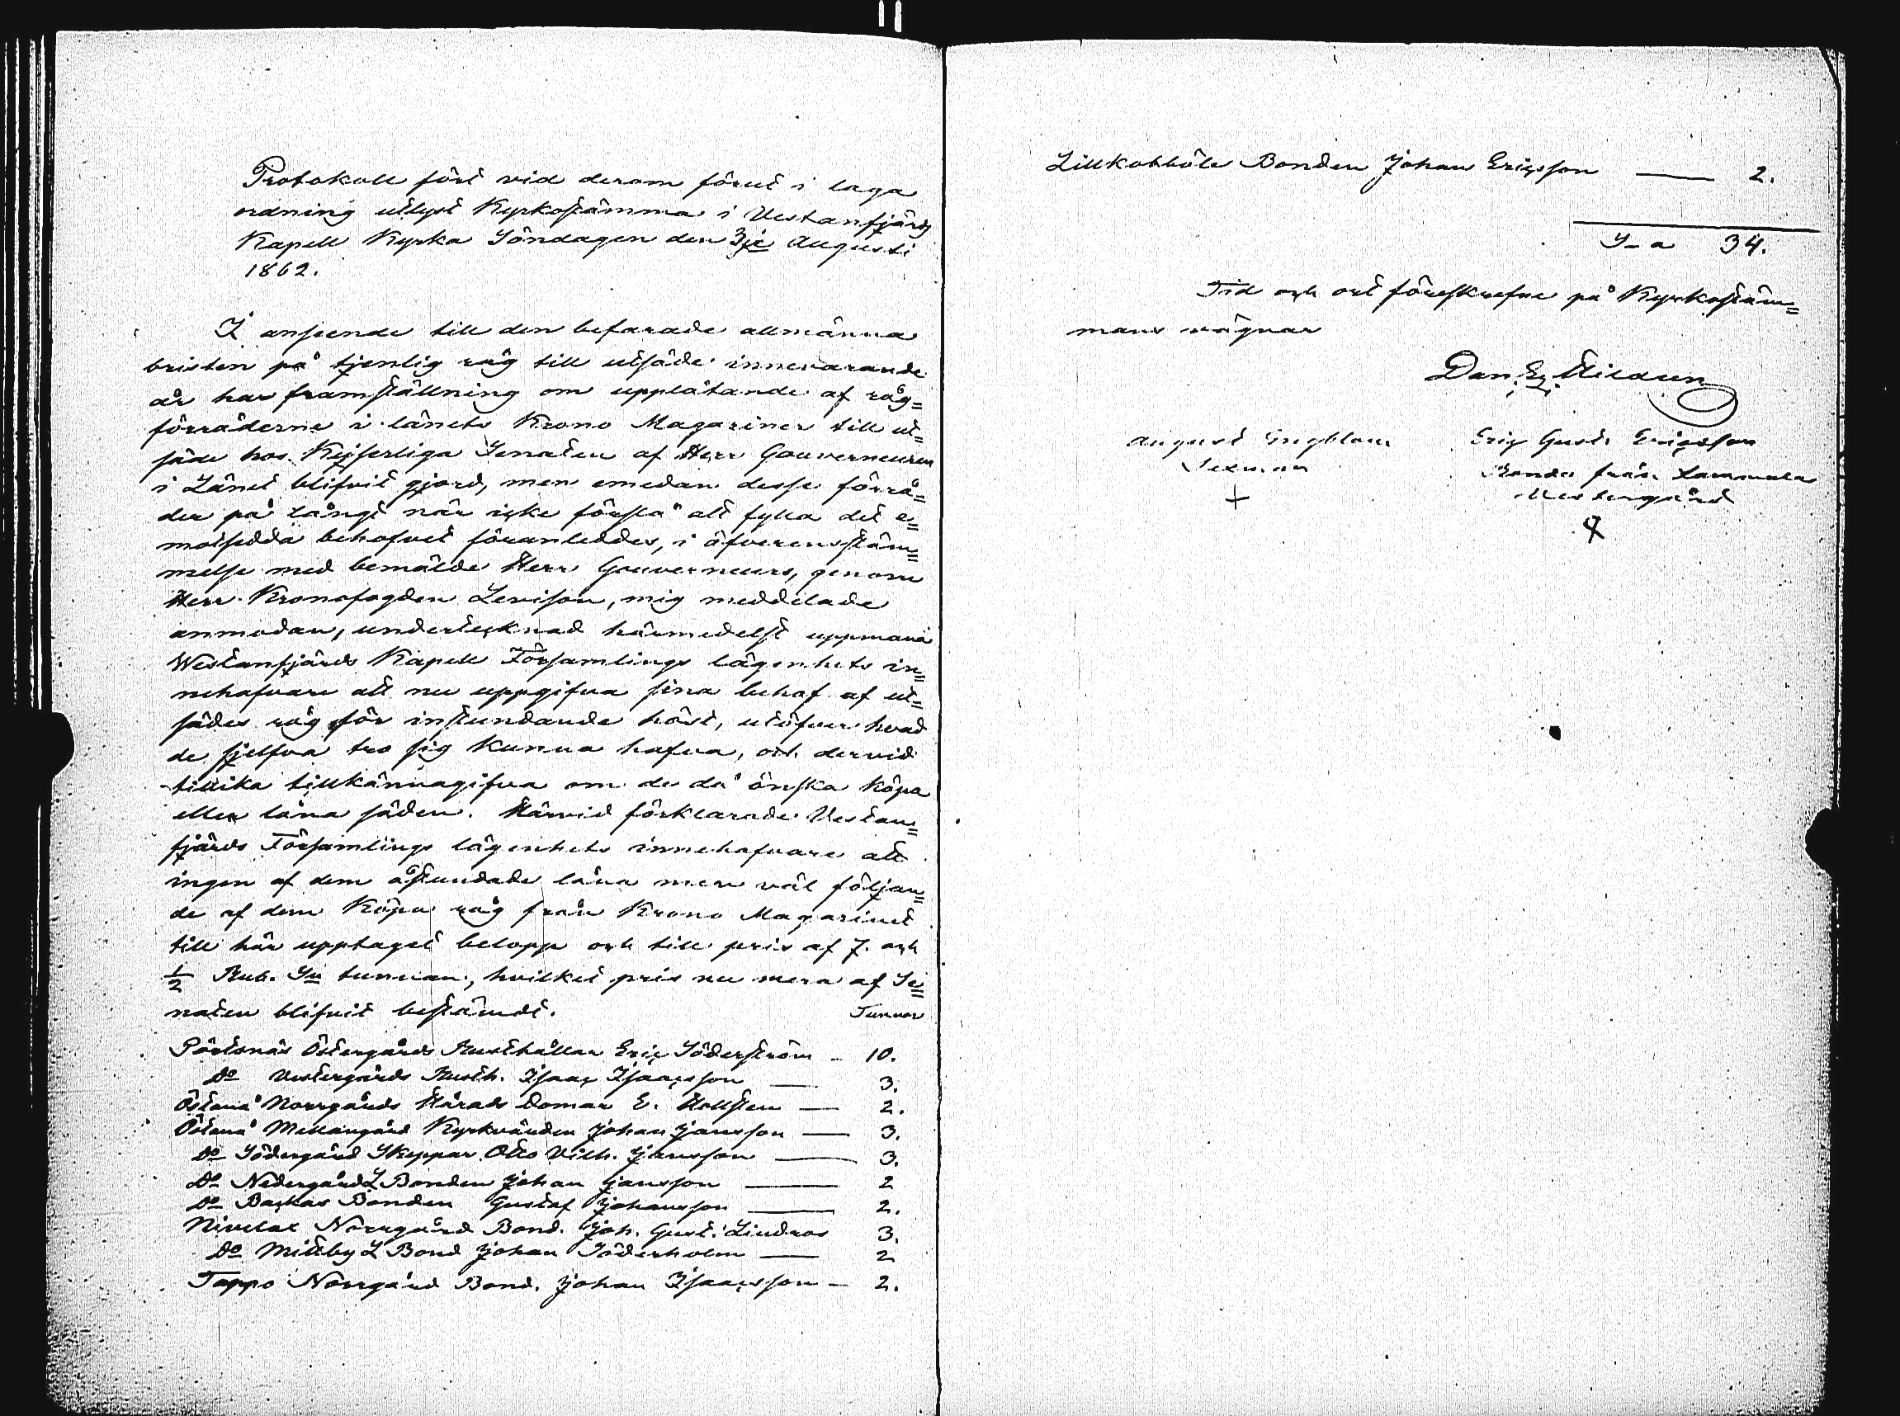 Protokoll fört vid derom förut i laga
ordning utlyst Kyrkostämma i Vestanfjärds
Kapell Kyrka Söndagen den 3je Augusti
1862.
I anseende till den befarade allmänna
bristen på tjenlig råg till utsäde innevarande
år har framställning om upplåtande af råg=
förråderne i länets Krono Magaziner till ut=
säde hos Kejserliga Senaten af Herr Gouverneuren
i Länet blifvit gjord, men emedan desse förrå=
der på långt när icke förslå att fylla det e=
motsedda behofvet föranleddes, i öfverensstäm=
melse med bemälde Herr Gouverneurs, genom
Herr Kronofogden Levison, mig meddelade
anmodan, undertecknad härmedelst uppmana
Westanfjärds Kapell Församlings lägenhets in=
nehafvare att nu uppgifva sina behof af ut=
sädes råg för instundande höst, utöfver hvad
de sjelfva tro sig kunna hafva, och dervid
tillika tillkännagifva om de då önska köpa
eller låna säden. Härvid förklarade Vestan=
fjärds Församlings lägenhets innehafvare att
ingen af dem åstundade låna men väl följan=
de af dem köpa råg från Krono Magazinet
till här upptaget belopp och till pris af 7. och
1/2 Rub. Sr tunnan, hvilket pris nu mera af Se=
naten blifvit bestämdt. Tunnor
Pörtsnäs Östergårds Rusthållar Eric Söderström - 10.
Do Vestergårds Rusth. Isaac Isaacsson — 3.
Östanå Norrgårds Härads Domar E. Hollsten — 2.
Östanå Mellangård Kyrkvärden Johan Jansson — 3.
Do Södergård Skeppar Otto Vilh. Jansson — 3.
Do Nedergårds Bonden Johan Jansson — 2
Do Backas Bonden Gustaf Johansson — 2.
Nivelax Norrgård Bond. Joh. Gust. Lindros 3.
Do Mittby Bond Johan Söderholm — 2
Tappo Norrgård Bond. Johan Isaacsson - 2.
Lillkobböle Bonden Johan Ericsson — 2.
S-a 34.
Tid och ort föreskrefne på Kyrkostäm=
mans vägnar
Dan. Ez.
August Engblom Eric Gust. Ericsson
Sexman Bonde från Lammala
+ Vestergård